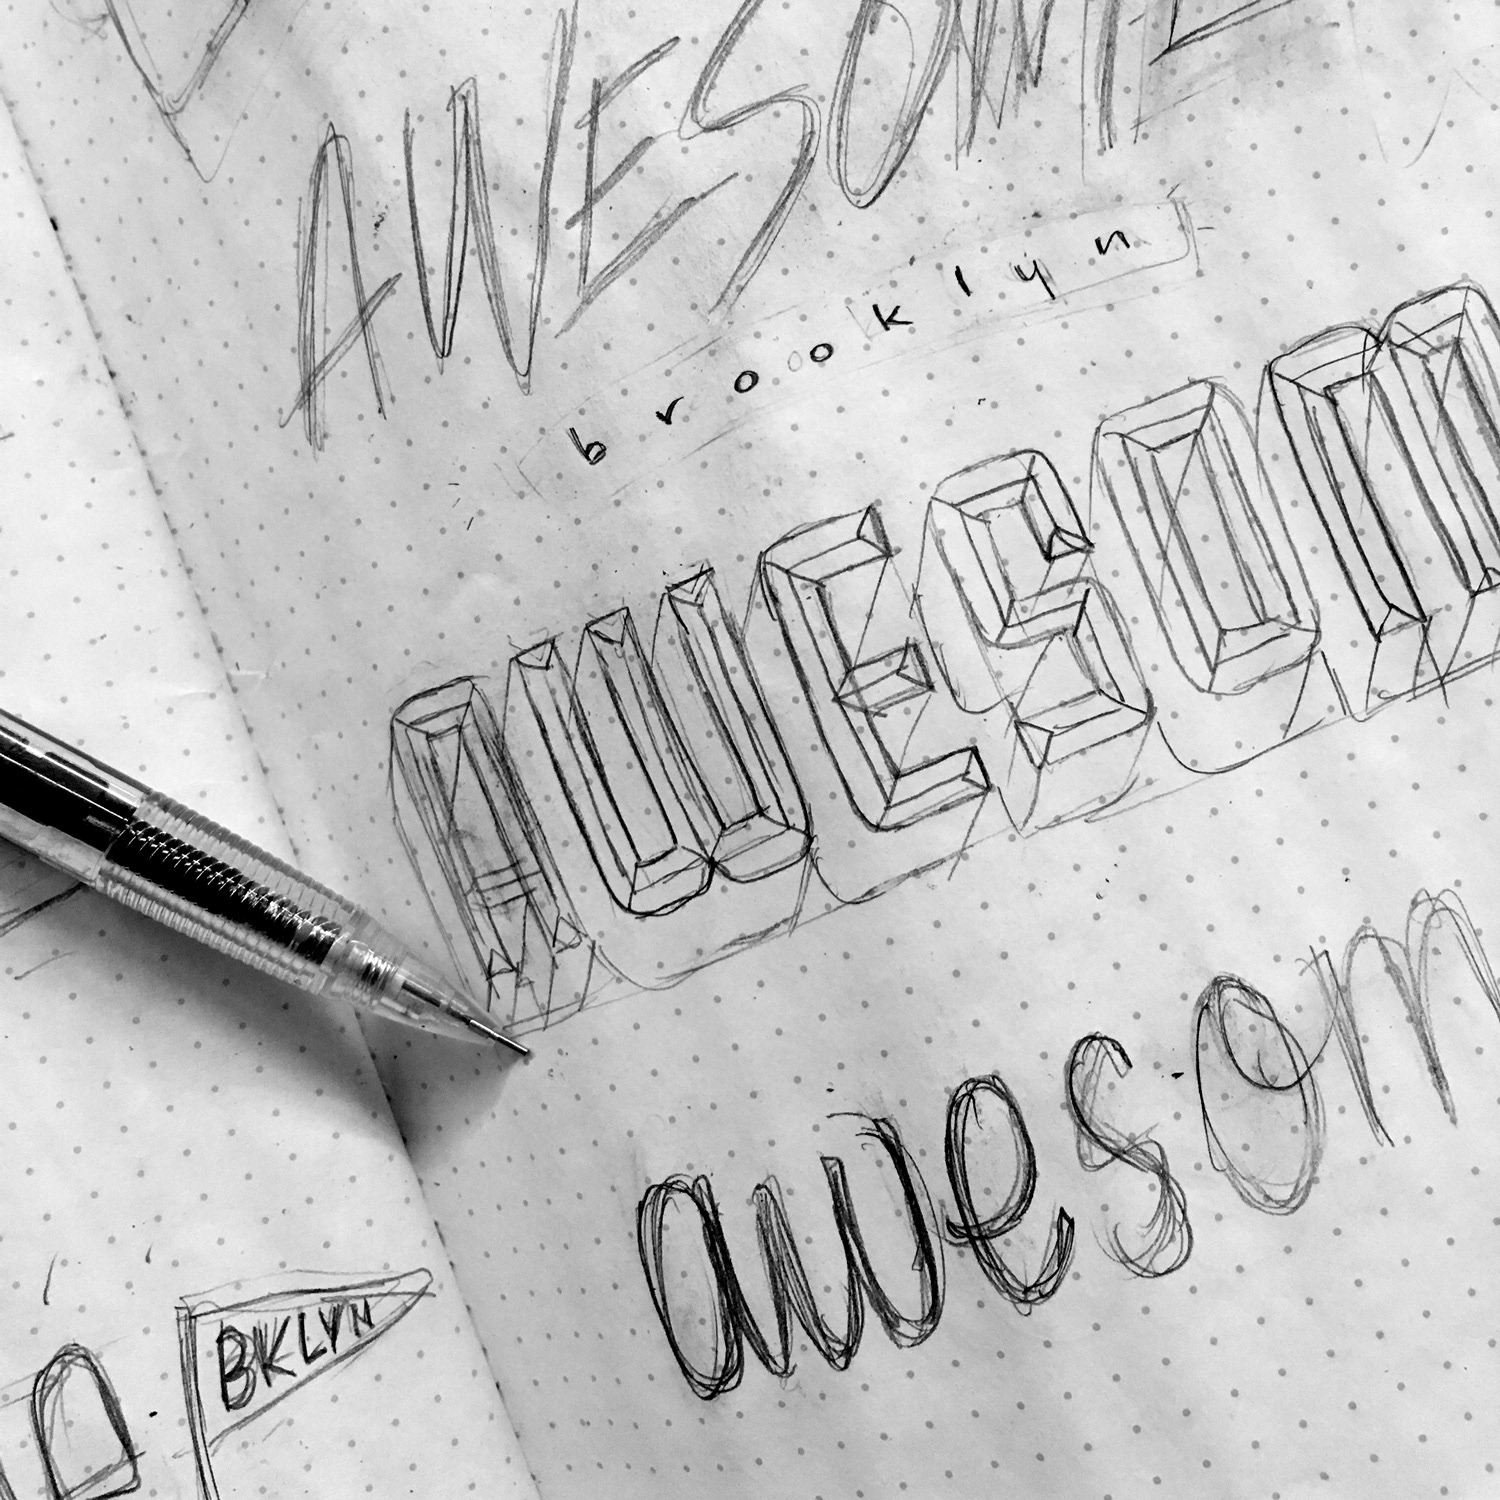 AWESOME
brooklyn
AWESOM
awesom
BKLYN